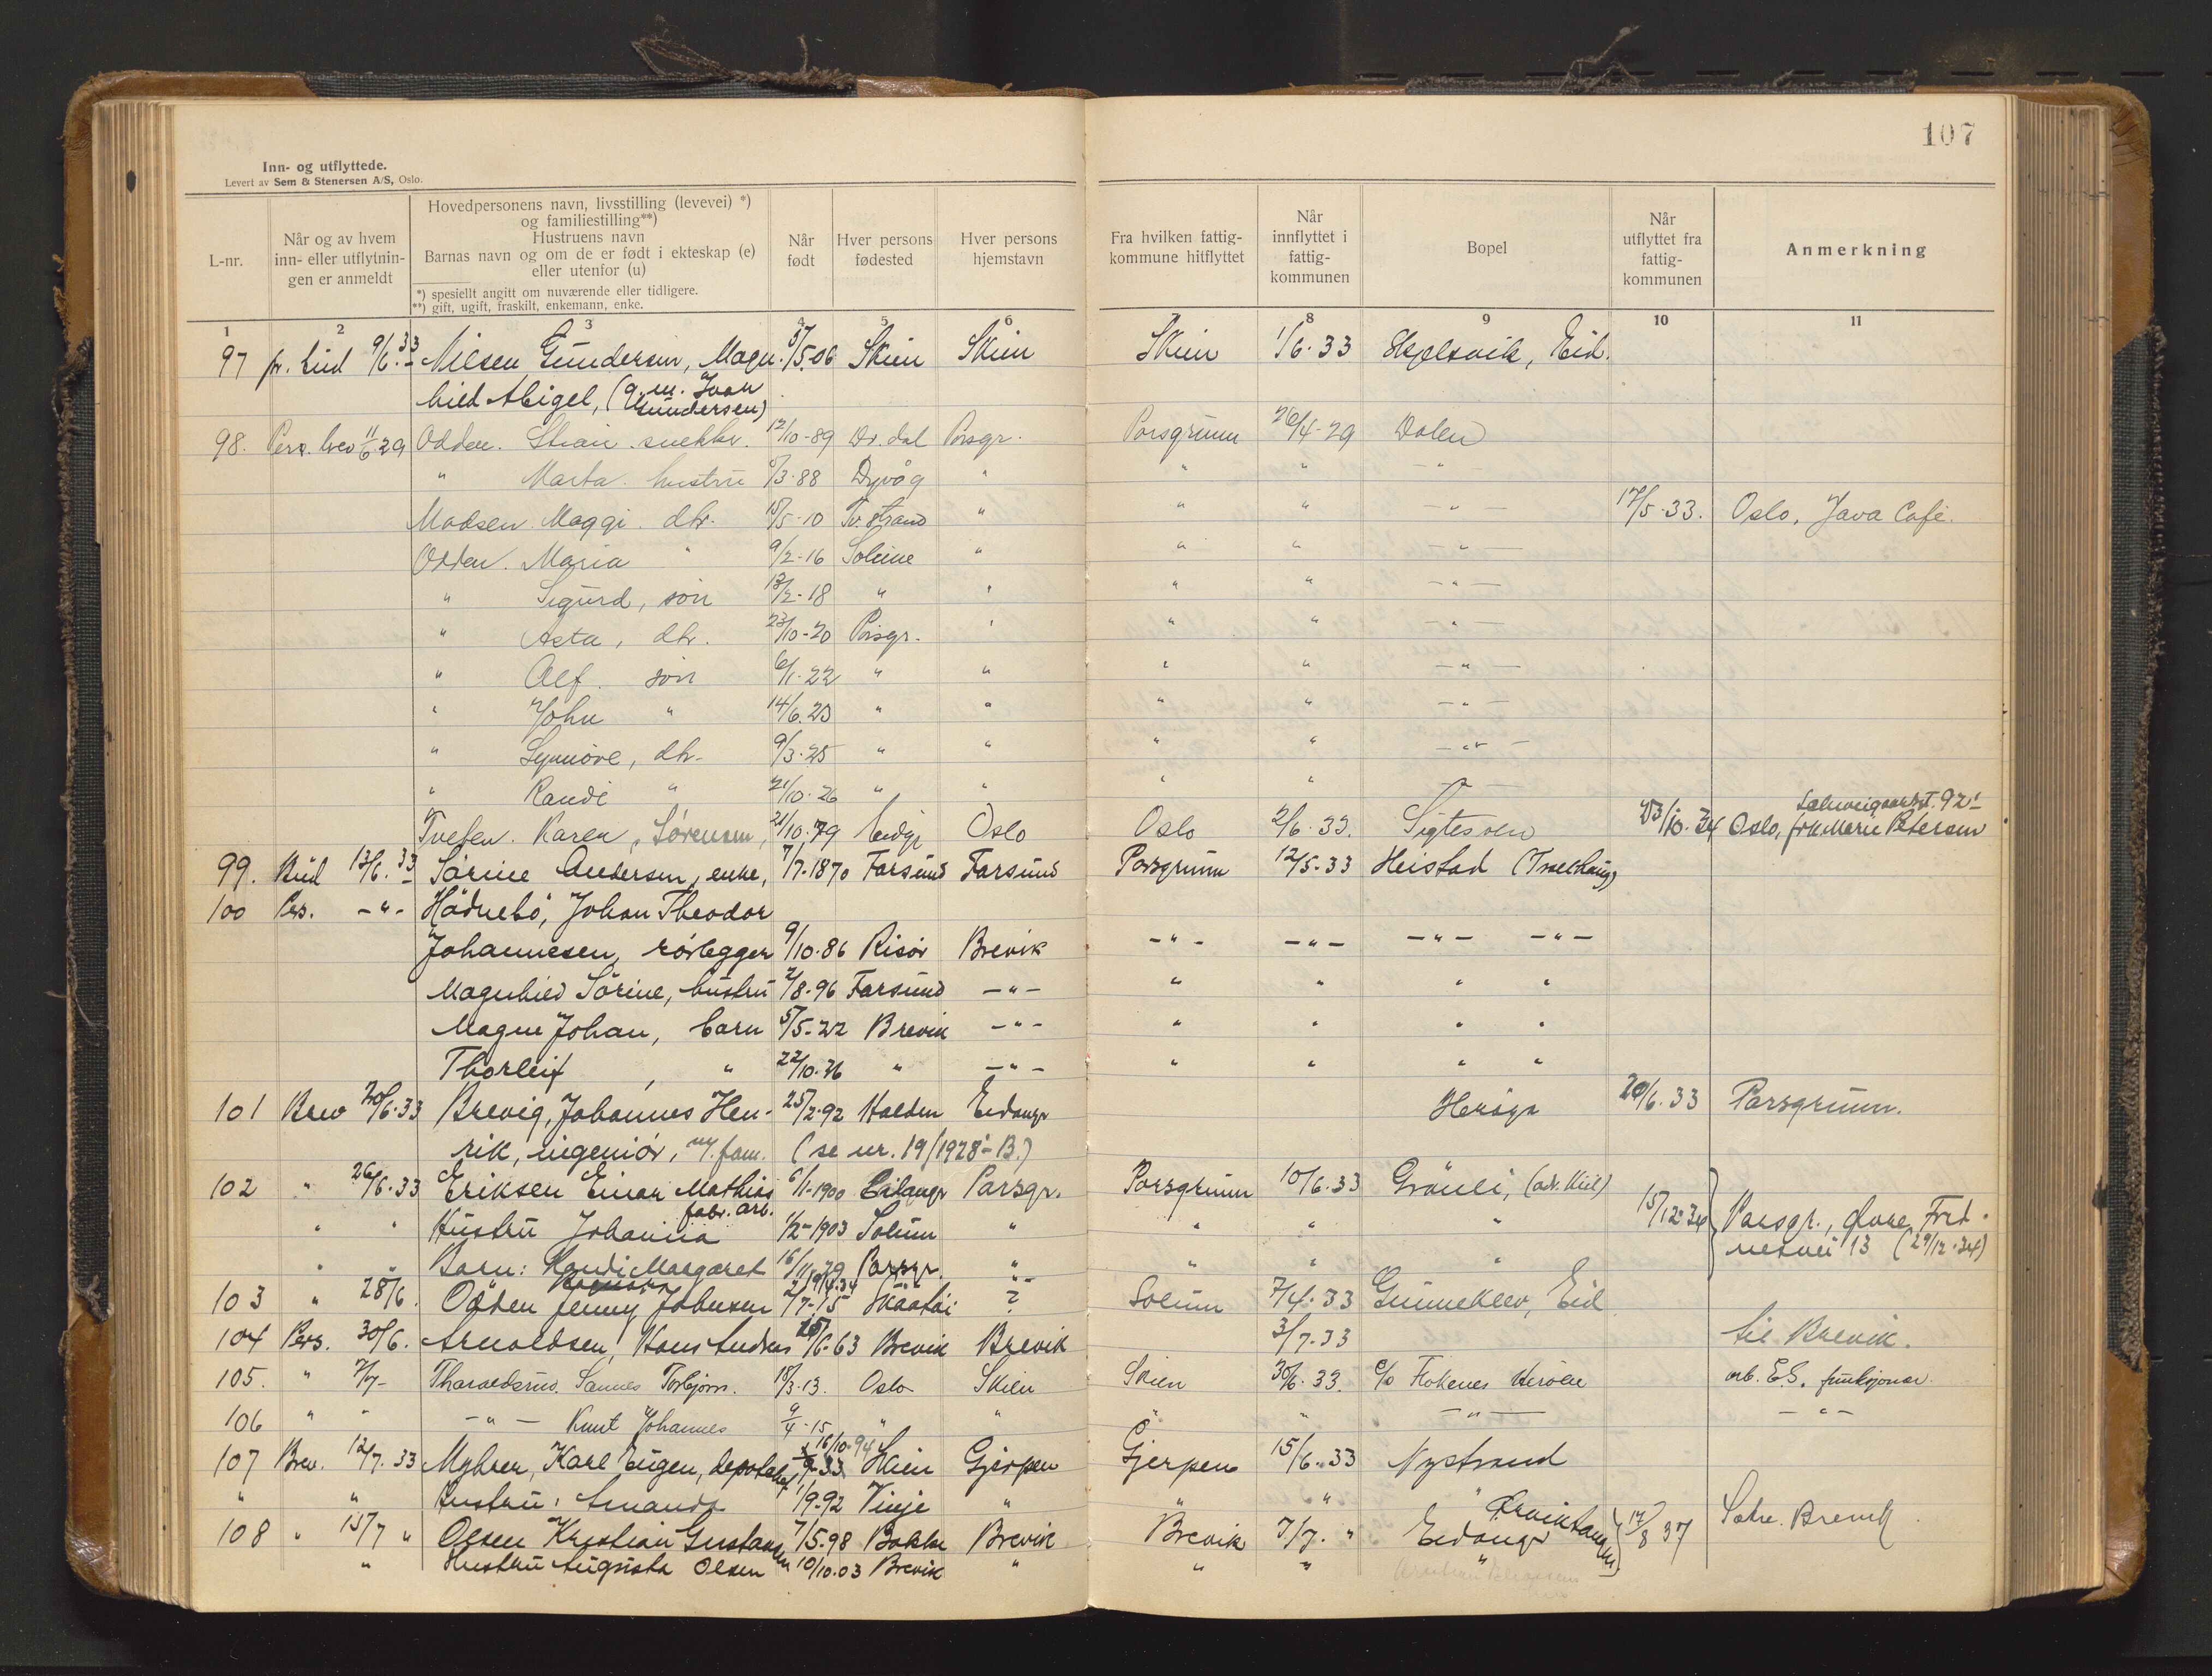 107
Inn- og utflyttede.
Levert av Sem & Stenersen A/S, Oslo.
L-nr.
Når og av hvem
inn- eller utflytnin-
gen er anmeldt
Hovedpersonens navn, livsstilling (levevei) *)
og familiestilling**)
Hustruens navn
Barnas navn og om de er født i ekteskap (e)
eller utenfor (u)
*) spesiellt angitt om nuværende eller tidligere.
**) gift, ugift, fraskilt, enkemann, enke.
Når
født
Hver persons
fødested
Hver persons
hjemstavn
Fra hvilken fattig-
kommune hitflyttet
Når
innflyttet i
fattig-
kommunen
Bopel
Når
utflyttet fra
fattig-
kommunen
Anmerkning
1 2 3 4 5 6 8 9 10 11
97 pr. bud 9/6.33 Nilsen Gundersen, Magn- 5/5.06 Skien Skien Skien 1/6.33 Skjelsvik, Eid.
hild Abigel, (g. m. Ivar
Gundersen)
98. Pers. brev 11/6 29 Odden. snekker. 12/10-89 Dr.dal Porsgr. Porsgrunn 26/4-29 Dalen
" Marta. hustru /3-88 Dypvåg " " " - " -
Madsen. Maggi. dtr. 15/5-10 Tv.strand " " " - " - 17/5-33. Oslo, Java Café.
Odden. Maria " 9/2-16 Solum " " " - " -
" Sigurd, søn 13/2-18 " " " " - " -
" Asta, dtr. 23/10-20 Porsgr. " " " - " -
" Alf. søn 6/1-22 " " " " - " -
" John " 14/6.23 " " " " - " -
" Synnøve, dtr. 9/3-25 " " " " - " -
" Randi " 21/10-26 " " " "
Schweigaardst. 92
Tveten. Karen, Sørensen, 21/10.79 Eidgr Oslo Oslo 2/6-33. Sigtesøen 23/10.34 Oslo, frk Marie Petersen
99. Bud 13/6.33 Sørine Andersen, enke, 7/7-1870 Farsund Farsund Porsgrunn 12/5-33 Heistad (Tveehaug)
100 Pers. -"- Hødnebø, Johan Theodor
Johannesen, rørlegger 9/10-86 Risør Brevik -"- -"- -"- -"-
Magnhild Sørine, hustru 2/8-96 Farsund -"- " " " "
Magne Johan, barn 5/5-22 Brevik -"- " " " "
Thorleif , " 22/10-26 " -"- " " " "
101 Brev 20/6-33 Brevig, Johannes Hen- 25/2-92 Halden Eidangr Herøya 20/6.33 Porsgrunn.
rik, ingeniør, m/ fam. (se nr. 19/1928 - B.)
102 " 26/6-33 Eriksen Einar Mathias 6/1-1900 Eidangr Porsgr. Porsgrunn 10/6.33 Grönli, (adr. Kiil)
fabr. arb.
" " Hustru Johanna 1/2-1903 Solum " " " " 15/12-34 Porsgr., Øvre Fred-
" " Barn: Randi Margaret 16/11-29 Porsgr. " " " " nesvei 13 (29/12-34)
103 " 28/6. Odden Jenny Johnsen 2/7-15 Skåtøi ? Solum 7/4-33 Gunneklev, Eid
104 Pers. 30/6. Arnoldsen, Hans Andreas 25/6-63 Brevik Brevik 3/7-33 til Brevik.
105. " 7/7- Tharaldsrud. Sannes Torbjørn. 18/3-13. Oslo Skien Skien 30/6.33. c/o Flakenes Herøen arb. E.S. funksjonær.
106 " - -"- Knut Johannes 9/4-15 " " " " -"- -"-
16/10-94
107 Brev. 12/7.33 Myhrer, Karl Eugen, Skien Gjerpen Gjerpen 15/6-33 Nystrand
" " Hustru: Amanda 1/9-92 Vinje " " " "
108 " 15/7 " Olsen Kristian Gustav 7/5-98 Bakke Brevik Brevik 7/7. " Eidangr 14/8 37 Brevik
" Hustru Augusta Olsen " 10/10.03 Brevik " " " "